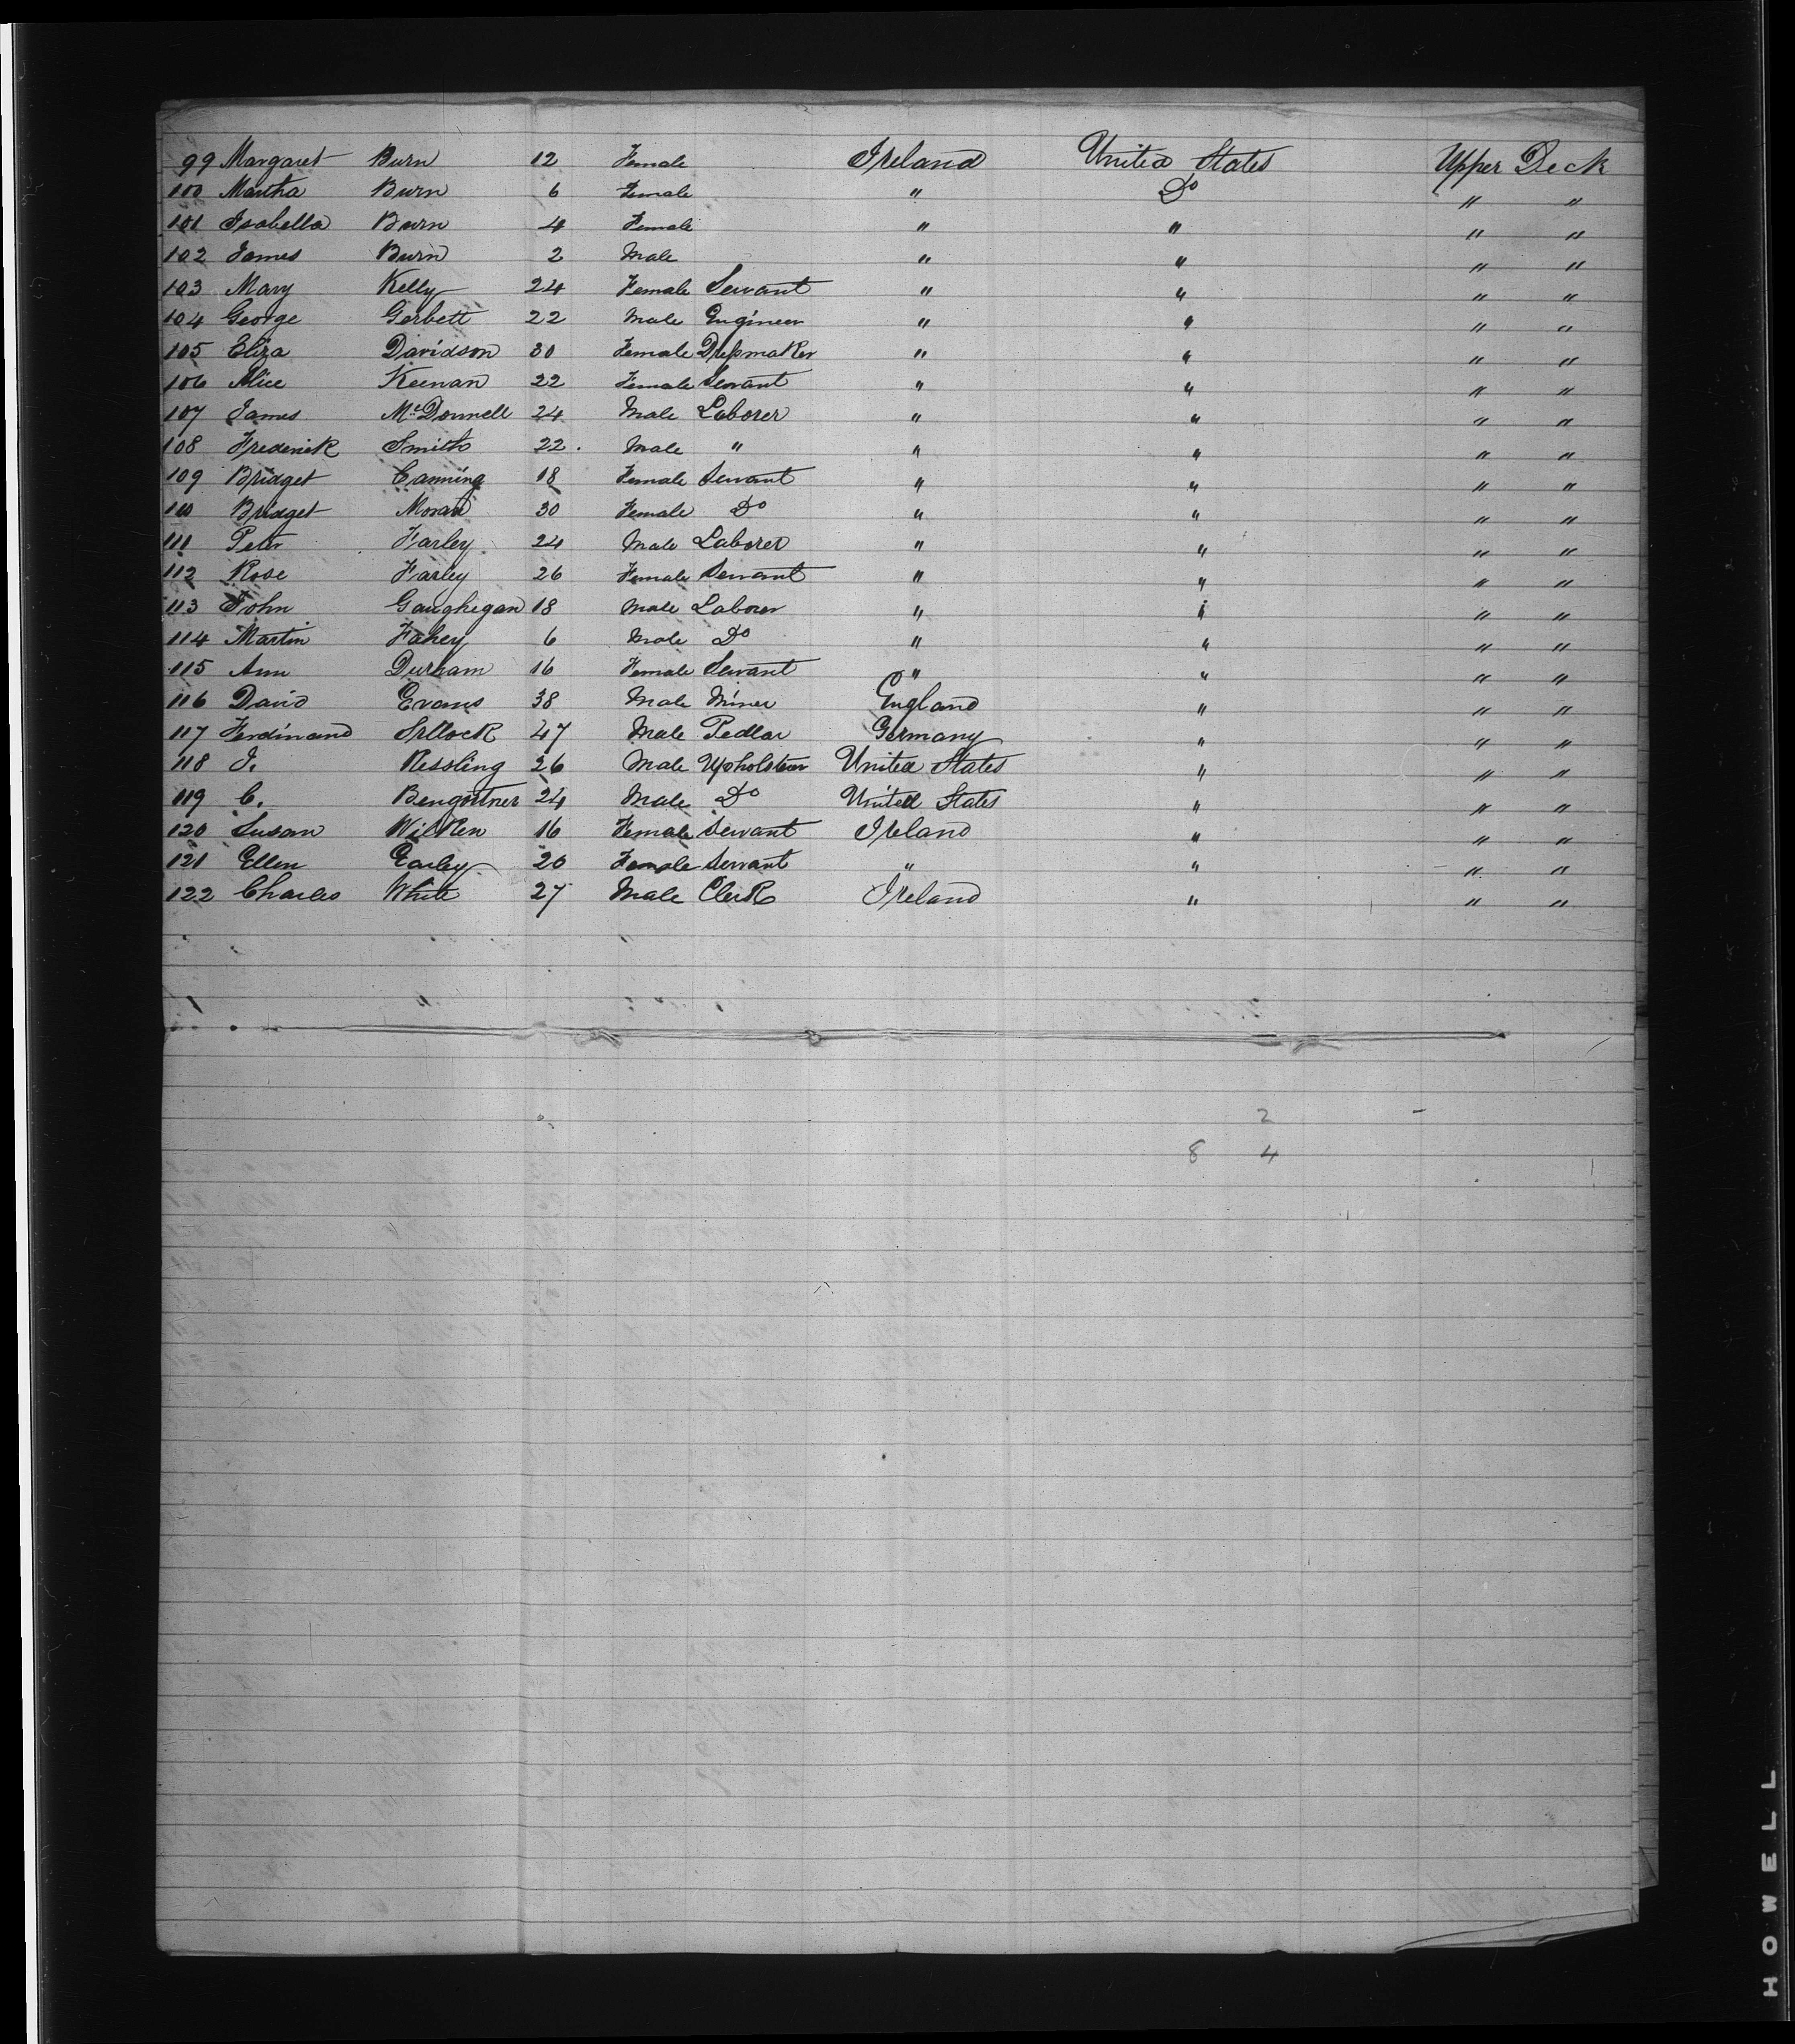 99 Margaret Burn 12 Female Ireland United States Upper Deck
100 Martha Burn 6 Female " Do " "
101 Isabella Burn 4 Female " " " "
102 James Burn 2 Male " " " "
103 Mary Kelly 24 Female Servant " " " "
104 George Gerbett 22 Male Engineer " " " "
105 Eliza Davidson 30 Female Dressmaker " " " "
106 Alice Keenan 22 Female Servant " " " "
107 James McDonnell 24 Male Laborer " " " "
108 Frederick Smith 22 Male " " " " "
109 Bridget Canning 18 Female Servant " " " "
110 Bridget Moran 30 Female Do " " " "
111 Peter Farley 24 Male Laborer " " " "
112 Rose Farley 26 Female Servant " " " "
113 John Gaughegan 18 Male Laborer " " " "
114 Martin Fahey 6 Male Do " " " "
115 Ann Durham 16 Female Servant " " " "
116 David Evans 38 Male Miner England " " "
117 Ferdinand 47 Male Pedlar Germany " " "
118 J. Ressling 26 Male Upholsterer United States " " "
119 C. Bengortner 24 Male Do United States " " "
120 Susan Wilken 16 Female Servant Ireland " " "
121 Ellen Earley 20 Female Servant " " " "
122 Charles White 27 Male Clerk Ireland " " "
2
8 4
HOWELL